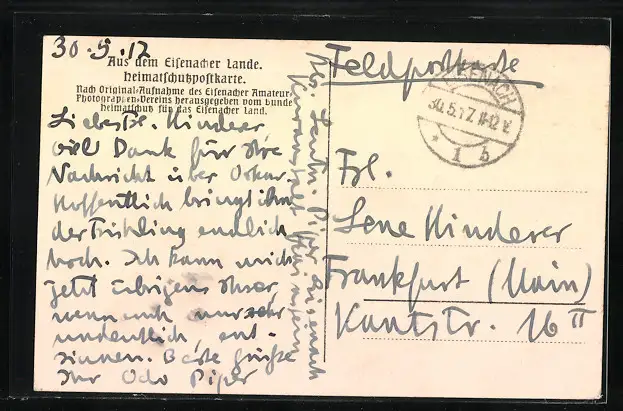 30.5.17
Aus dem Eisenacher Lande.
Heimatschutzpostkarte.
Nach Original-Aufnahme des Eisenacher Amateur-
Photographen-Vereins herausgegeben vom Bunde
Heimatschutz für das Eisenacher Land.
Liebes Frl. Hinderer,
viel Dank für Ihre
Nachricht über Oskar.
Hoffentlich bringt ihn
der Frühling endlich
hoch. Ich kann mich
jetzt übrigens Ihrer,
wenn auch nur sehr
undeutlich, ent-
sinnen. Beste Grüße
Ihr Odo Piper
Abs. Piper Eisenach
Kuranstalt
Feldpostkarte
EISENACH
30.5.17. 11-12 V
* 1 b
Frl.
Lene Hinderer
Frankfurt (Main)
Kantstr. 16 II